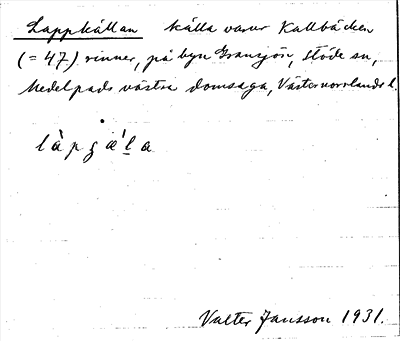 Lappkällan källa varur Kallbäcken
(= 47) rinner, på byn Gransjön, Stöde sn,
Medelpads västra domsaga, Västernorrlands l.
làpgä́la
Valter Jansson 1931.